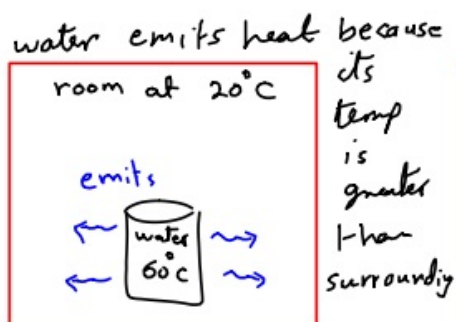 water emits heat because
its
temp
is
greater
than
surroundiy
room at 20°C
emits
water
60°C